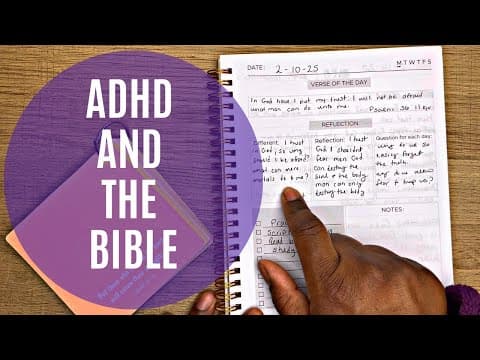 ADHD
AND
THE
BIBLE
DATE: 2-10-25
M T W T F S
VERSE OF THE DAY
In God have I put my trust: I will not be afraid
what man can do unto me. Psalm: 56 11
REFLECTION
Different: I trust
in God, so why
should I be afraid?
what can mere
mortals do to me?
Reflection: I trust
God I shouldn't
fear man God
can destroy the
soul & the body
man can only
destroy the body
Question for each day:
why do we so
easily forget
the truth.
why do we allow
fear to keep us?
NOTES:
Read
study